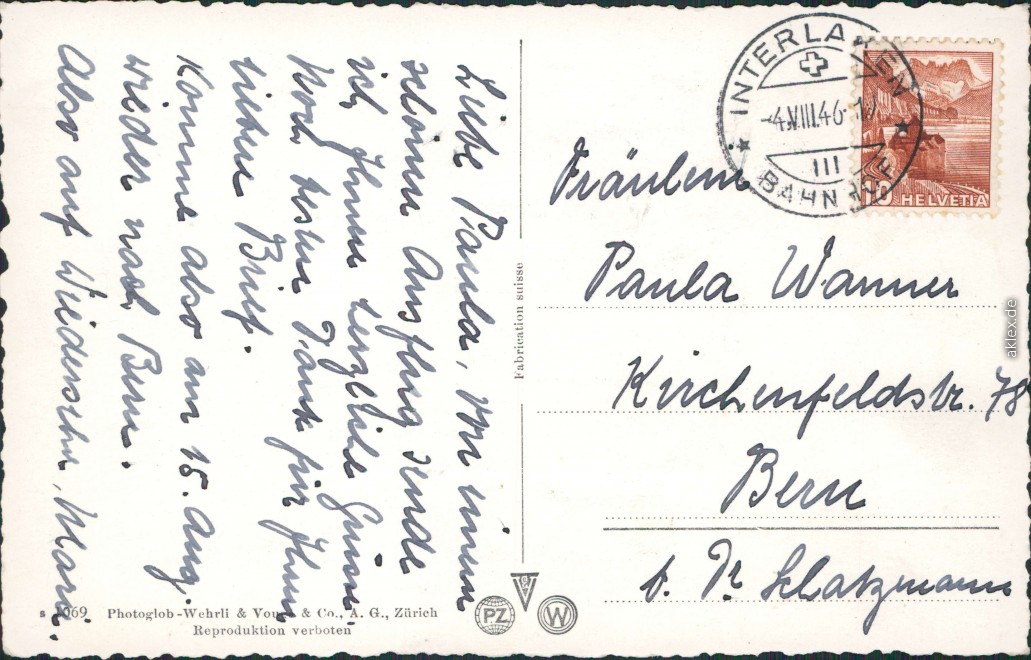 Liebe Paula, Von einem
schönen Ausflug sende
ich Ihnen herzliche Grüsse.
Noch besten Dank für Ihren
lieben Brief.
Komme also am 15. Aug.
wieder nach Bern.
Also auf Wiedersehn, Mari.
INTERLAKEN
-4.VIII.46
III
BAHNHOF
HELVETIA
Fräulein
Paula Wanner
Kirchenfeldstr. 78
Bern
b. Dr Schatzmann
Fabrication suisse
s 1069 Photoglob-Wehrli & Vouga & Co., A. G., Zürich
Reproduktion verboten
PZ
W
aklex.de